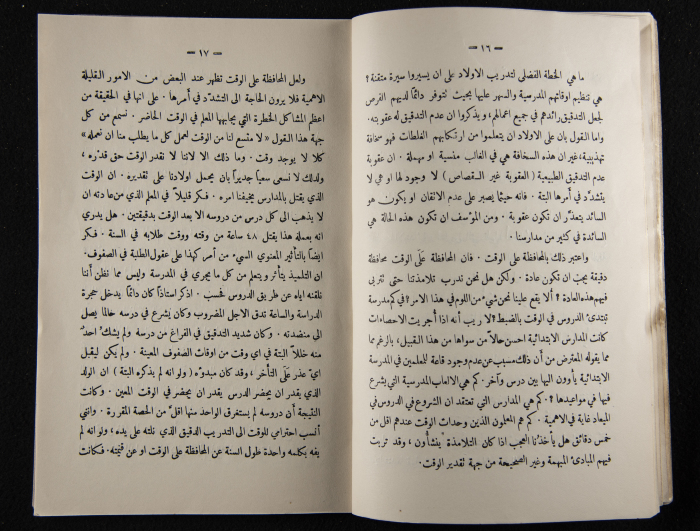 — ١٦ —
ما هي الخطة الفضلى لتدريب الاولاد على ان يسيروا سيرة متقنة ؟
هي تنظيم اوقاتهم المدرسية والسهر عليها بحيث تتوفر دائمًا لديهم الفرص
لجعل التدقيق رائدهم في جميع اعمالهم، ويذكروا ان عدم التدقيق له عقوبته.
واما القول بان على الاولاد ان يتعلموا من ارتكابهم الغلطات فهو سخافة
تهذيبية، غير ان هذه السخافة هي في الغالب منسية او مهملة . ان عقوبة
عدم التدقيق الطبيعية ( العقوبة غير القصاص ) لا وجود لها او هي لا
يتشدّد في أمرها البتة . فانه حيثما يصبر على عدم الاتقان او يكون هو
السائد يتعذّر ان تكون عقوبة . ومن المؤسف ان تكون هذه الحالة هي
السائدة في كثير من مدارسنا .
واعتبر ذلك بالمحافظة على الوقت . فان المحافظة عَلَى الوقت محافظة
دقيقة يجب ان تكون عادة . ولكن هل نحن ندرب تلامذتنا حتى تتربى
فيهم هذه العادة ؟ ألا يقع علينا نحن شيء من اللوم في هذا الامر ؟ في كم مدرسة
تبتدئ الدروس في الوقت بالضبط ؟ لا ريب أنه اذا أجريت الاحصاءات
كانت المدارس الابتدائية احسن حالاً من سواها من هذا القبيل، بالرغم مما
مما يقوله المعترض من أن ذلك مسبب عن عدم وجود قاعة للمعلمين في المدرسة
الابتدائية يأوون اليها بين درس وآخر. كم هي الالعاب المدرسية التي يشرع
فيها في مواعيدها ؟ . كم هي المدارس التي تعتقد ان الشروع في الدروس في
الميعاد غاية في الاهمية . كم هم المعلمون الذين وحدات الوقت عندهم اقل من
خمس دقائق هل يأخذنا العجب اذا كان التلامذة ينشأون ، وقد تربت
فيهم المبادئ المبهمة وغير الصحيحة من جهة تقدير الوقت .
— ١٧ —
ولعل المحافظة على الوقت تظهر عند البعض من الامور القليلة
الاهمية فلا يرون الحاجة الى التشدّد في أمرها . على انها في الحقيقة من
اعظم المشاكل الخطرة التي يجابهها المعلم في الوقت الحاضر . نسمع من كل
جهة هذا القول « لا متسع انا من الوقت لعمل كل ما يطلب منا ان نعمله »
كلا لا يوجد وقت . وما ذلك الا لاننا لا نقدر الوقت حق قدره ،
ولذلك لا نسعى سعياً جديراً بان يحمل اولادنا على تقديره . ان الوقت
الذي يقتل بالمدارس يخيفنا امره . فكر قليلاً في المعلم الذي من عادته ان
لا يذهب الى كل درس من دروسه الا بعد الوقت بدقيقتين . هل يدري
انه بعمله هذا يقتل ٤٨ ساعة من وقته ووقت طلابه في السنة . فكر
ايضاً بالتأثير المعنوي السيء من أمر كهذا على عقول الطلبة في الصفوف.
ان التلميذ يتأثر ويتعلم من كل ما يجري في المدرسة وليس مما نظن أننا
نلقنه اياه عن طريق الدروس فحسب . اذكر استاذاً كان دائماً يدخل حجرة
الدراسة والساعة تدق الاجل المضروب وكان يشرع في درسه حالما يصل
الى منضدته . وكان شديد التدقيق في الفراغ من درسه ولم يشك احد
منه خللاً البتة في اي وقت من اوقات الصفوف المعينة . ولم يكن ليقبل
اي عذر عَلَى التأخر ، وقد كان مبدؤه ( ولو انه لم يذكره البتة ) ان الولد
الذي يقدر ان يحضر الدرس يقدر ان يحضر في الوقت المعين . وكانت
النتيجة أن دروسه لم يستغرق الواحد منها اقل من الحصة المقررة . وانني
أنسب احترامي للوقت الى التدريب الدقيق الذي نلته على يده ، ولو انه لم
يفه بكلمة واحدة طول السنة عن المحافظة على الوقت او عن قيمته. فكانت